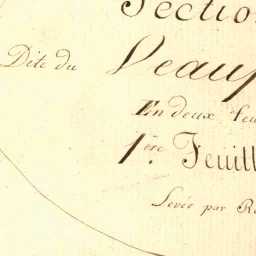 Section
Dite du Veau
En deux feu
1ère Feuill
Levée par R